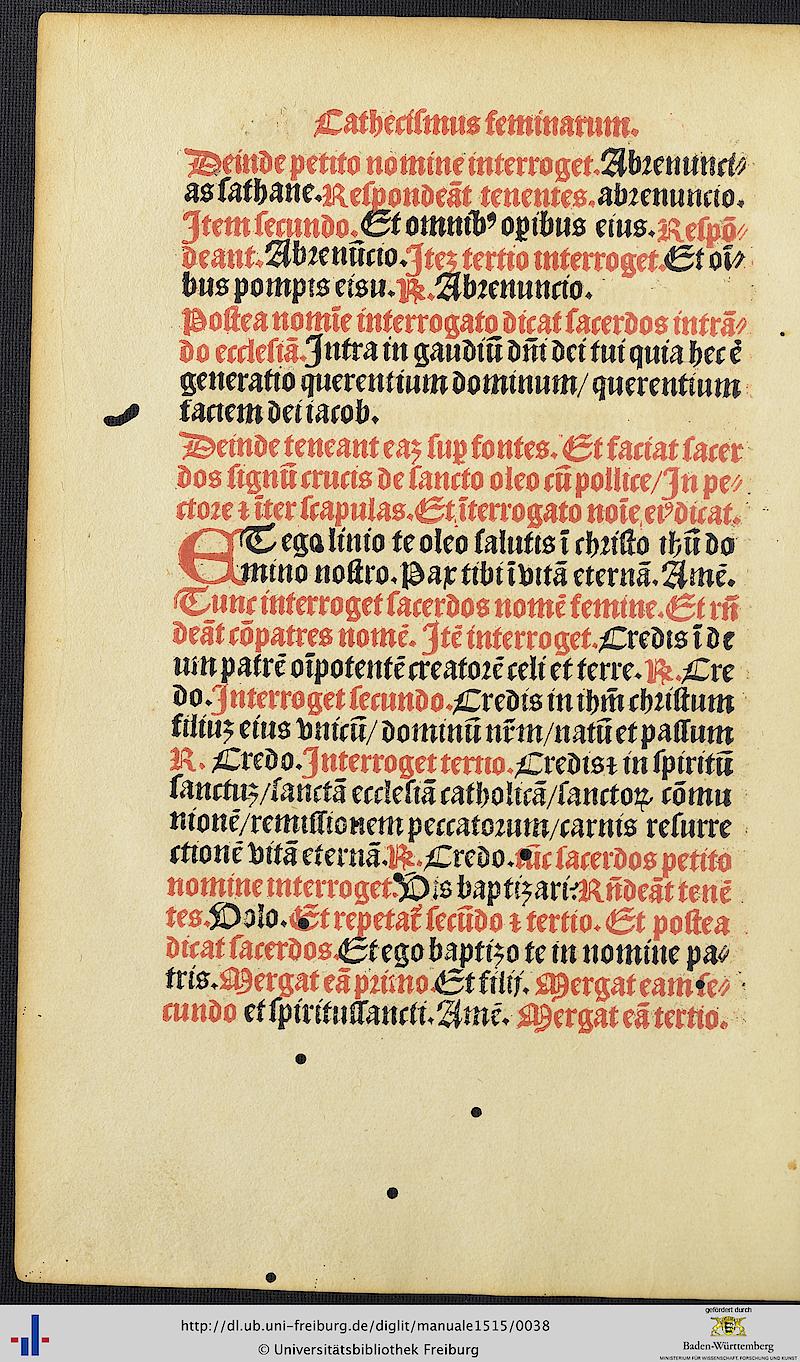 Cathecismus feminarum.
Deinde petito nomine interroget. Abrenunci⸗
as sathane. Respondeāt tenentes. abrenuncio.
Item secundo. Et omnibꝰ oꝑibus eius. Respō⸗
deant. Abrenūcio. Iteꝫ tertio interroget. Et oī⸗
bus pompis eisu. ℟. Abrenuncio.
Postea nomīe interrogato dicat sacerdos intrā⸗
do ecclesiā. Intra in gaudiū dñi dei tui quia hec ē
generatio querentium dominum/ querentium
faciem dei iacob.
Deinde teneant eaꝫ suꝑ fontes. Et faciat sacer
dos signū crucis de sancto oleo cū pollice/ In pe⸗
ctore ⁊ īter scapulas. Et īterrogato noīe eiꝰ dicat.
ET ego linio te oleo salutis ī christo ihū do
mino nostro. Pax tibi ī vitā eternā. Amē.
Tunc interroget sacerdos nomē femine. Et rñ
deāt cōpatres nomē. Itē interroget. Credis ī de
um patrē oīpotentē creatorē celi et terre. ℟. Cre
do. Interroget secundo. Credis in ihm̄ christum
filiuꝫ eius vnicū/ dominū nr̄m/ natū et passum
R. Credo. Interroget tertio. Credis ⁊ in spiritū
sanctuꝫ/ sanctā ecclesiā catholicā/ sanctoꝝ cōmu
nionē/ remissionem peccatorum/ carnis resurre
ctionē vitā eternā. ℟. Credo. tūc sacerdos petito
nomine interroget. Vis baptizari: Rñdeāt tenē
tes. Volo. Et repetat̄ secūdo ⁊ tertio. Et postea
dicat sacerdos. Et ego baptizo te in nomine pa⸗
tris. Mergat eā primo. Et filij. Mergat eam se⸗
cundo et spiritussancti. Amē. Mergat eā tertio.
http://dl.ub.uni-freiburg.de/diglit/manuale1515/0038
© Universitätsbibliothek Freiburg
gefördert durch
Baden-Württemberg
MINISTERIUM FÜR WISSENSCHAFT, FORSCHUNG UND KUNST